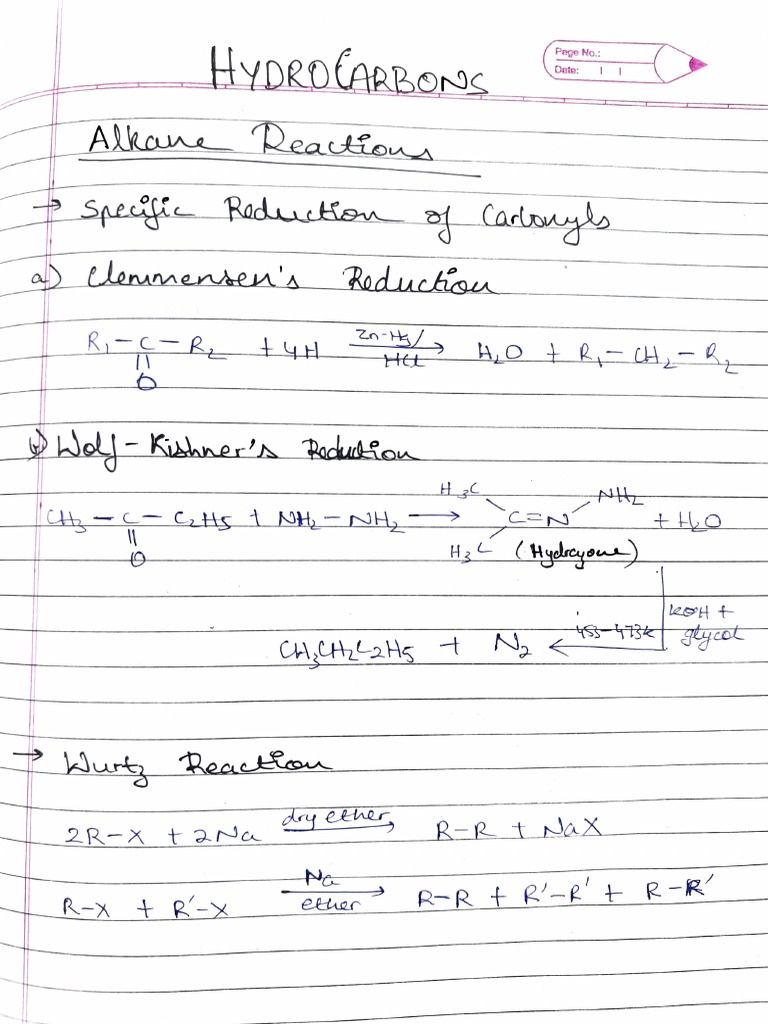 HYDROCARBONS
Page No.:
Date: | |
Alkane Reactions
→ Specific Reduction of Carbonyls
a) Clemmensen's Reduction
R₁ – C – R₂ + 4H Zn-Hg/ → H₂O + R₁ – CH₂ – R₂
HCl
||
O
b) Wolf - Kishner's Reduction
H₃C NH₂
CH₃ – C – C₂H₅ + NH₂ – NH₂ → C=N + H₂O
|| H₃C (Hydrazone)
O
KOH +
453-473K glycol
CH₃CH₂C₂H₅ + N₂ ←
→ Wurtz Reaction
2R-X + 2Na dry ether → R-R + NaX
R-X + R'-X Na → R-R + R'-R' + R-R'
ether